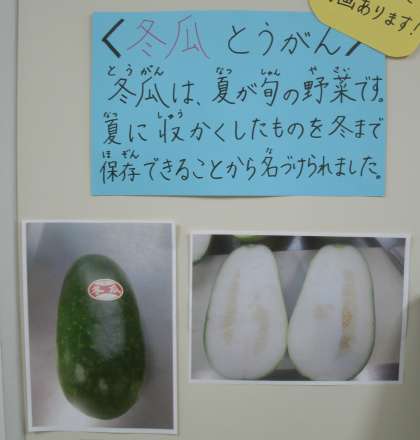 画あります!
〈冬瓜 とうがん〉
とうがん なつ しゅん やさい
冬瓜は、夏が旬の野菜です。
なつ しゅう
夏に収かくしたものを冬まで
ほぞん な
保存できることから名づけられました。
冬瓜